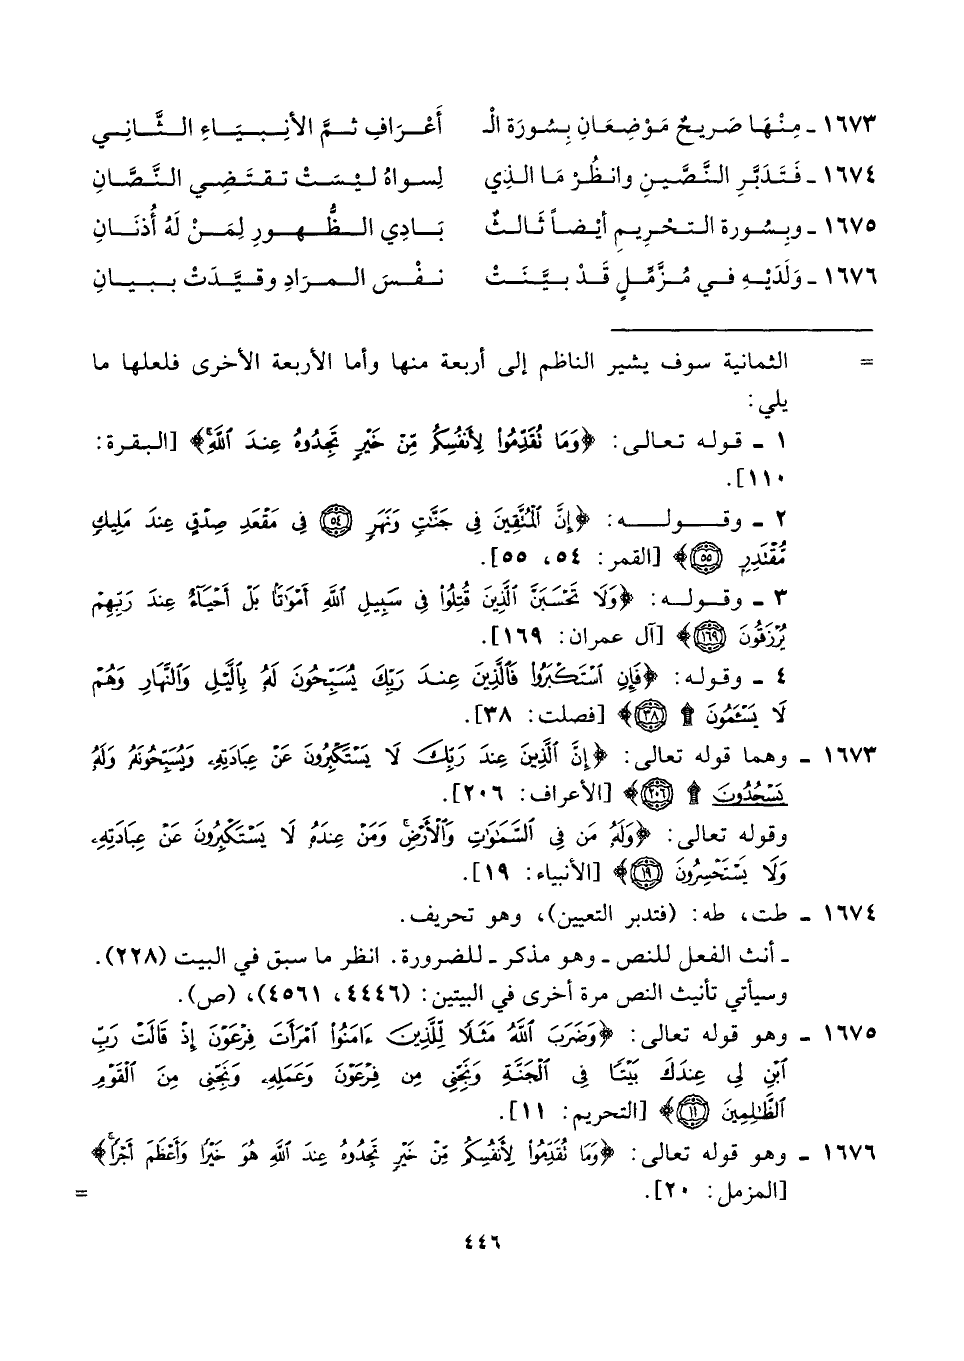 ١٦٧٣ - مِنْهَا صَرِيحٌ مَوْضِعَانِ بِسُورَة الْـ أَعْرَافِ ثمَّ الأنبِيَاءِ الثَّانِي
١٦٧٤ - فَتَدَبَّرِ النَّصَّينِ وانظُرْ مَا الذِي لِسواهُ ليْسَتْ تقتَضِي النَّصَّانِ
١٦٧٥ - وبِسُورة التحْرِيمِ أيْضاً ثَالثٌ بَادِي الظُّهورِ لِمَنْ لَهُ أُذنَانِ
١٦٧٦ - وَلَدَيْهِ في مُزَّمِّلٍ قَدْ بيَّنَتْ نفْسَ المرَادِ وقيَّدَتْ ببيانِ
= الثمانية سوف يشير الناظم إلى أربعة منها وأما الأربعة الأخرى فلعلها ما
يلي:
١ - قوله تعالى: ﴿وَمَا نُقَدِّمُوا۟ لِأَنفُسِكُم مِّنْ خَيْرٍ تَجِدُوهُ عِندَ ٱللَّهِ﴾ [البقرة:
١١٠].
٢ - وقوله: ﴿إِنَّ ٱلْمُتَّقِينَ فِى جَنَّـٰتٍ وَنَهَرٍ ٥٤ فِى مَقْعَدِ صِدْقٍ عِندَ مَلِيكٍ
مُّقْتَدِرٍ ٥٥﴾ [القمر: ٥٤، ٥٥].
٣ - وقوله: ﴿وَلَا تَحْسَبَنَّ ٱلَّذِينَ قُتِلُوا۟ فِى سَبِيلِ ٱللَّهِ أَمْوَٰتًۢا بَلْ أَحْيَآءٌ عِندَ رَبِّهِمْ
يُرْزَقُونَ ١٦٩﴾ [آل عمران: ١٦٩].
٤ - وقوله: ﴿فَإِنِ ٱسْتَكْبَرُوا۟ فَٱلَّذِينَ عِندَ رَبِّكَ يُسَبِّحُونَ لَهُۥ بِٱلَّيْلِ وَٱلنَّهَارِ وَهُمْ
لَا يَسْـَٔمُونَ ۩ ٣٨﴾ [فصلت: ٣٨].
١٦٧٣ - وهما قوله تعالى: ﴿إِنَّ ٱلَّذِينَ عِندَ رَبِّكَ لَا يَسْتَكْبِرُونَ عَنْ عِبَادَتِهِۦ وَيُسَبِّحُونَهُۥ وَلَهُۥ
يَسْجُدُونَ ۩ ٢٠٦﴾ [الأعراف: ٢٠٦].
وقوله تعالى: ﴿وَلَهُۥ مَن فِى ٱلسَّمَـٰوَٰتِ وَٱلْأَرْضِ ۚ وَمَنْ عِندَهُۥ لَا يَسْتَكْبِرُونَ عَنْ عِبَادَتِهِۦ
وَلَا يَسْتَحْسِرُونَ ١٩﴾ [الأنبياء: ١٩].
١٦٧٤ - طت، طه: (فتدبر التعيين)، وهو تحريف.
- أنث الفعل للنص - وهو مذكر - للضرورة. انظر ما سبق في البيت (٢٢٨).
وسيأتي تأنيث النص مرة أخرى في البيتين: (٤٤٤٦، ٤٥٦١)، (ص).
١٦٧٥ - وهو قوله تعالى: ﴿وَضَرَبَ ٱللَّهُ مَثَلًا لِّلَّذِينَ ءَامَنُوا۟ ٱمْرَأَتَ فِرْعَوْنَ إِذْ قَالَتْ رَبِّ
ٱبْنِ لِى عِندَكَ بَيْتًا فِى ٱلْجَنَّةِ وَنَجِّنِى مِن فِرْعَوْنَ وَعَمَلِهِۦ وَنَجِّنِى مِنَ ٱلْقَوْمِ
ٱلظَّـٰلِمِينَ ١١﴾ [التحريم: ١١].
١٦٧٦ - وهو قوله تعالى: ﴿وَمَا نُقَدِّمُوا۟ لِأَنفُسِكُم مِّنْ خَيْرٍ تَجِدُوهُ عِندَ ٱللَّهِ هُوَ خَيْرًا وَأَعْظَمَ أَجْرًا ۚ﴾
[المزمل: ٢٠]. =
٤٤٦